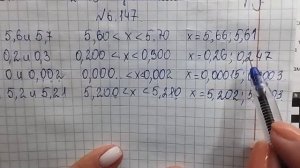 №6.147
5,6 и 5,7 5,60 < x < 5,70 x = 5,66; 5,61
0,2 и 0,3 0,200 < x < 0,300 x = 0,26; 0,247
0 и 0,002 0,000. < x < 0,002 x = 0,0005;
5,2 и 5,21 5,200 < x < 5,210 x = 5,202;